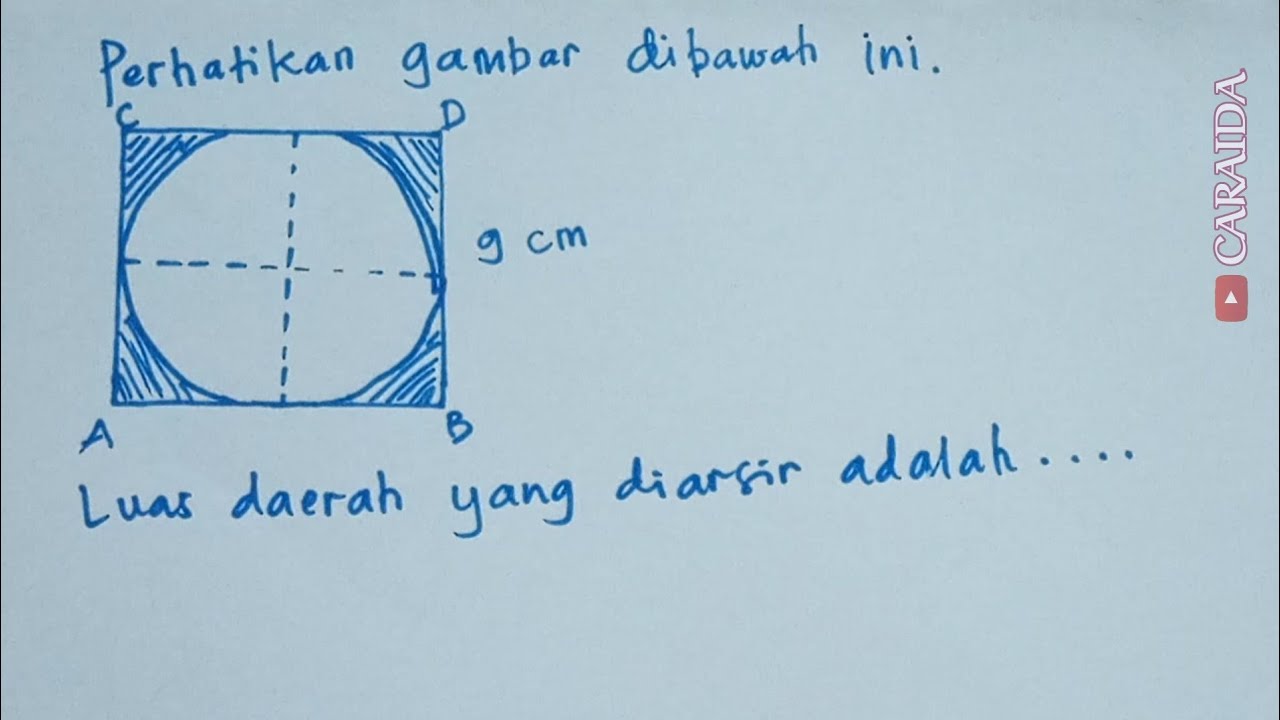 Perhatikan gambar dibawah ini.
C D
9 cm
A B
Luas daerah yang diarsir adalah ....
CARAIDA